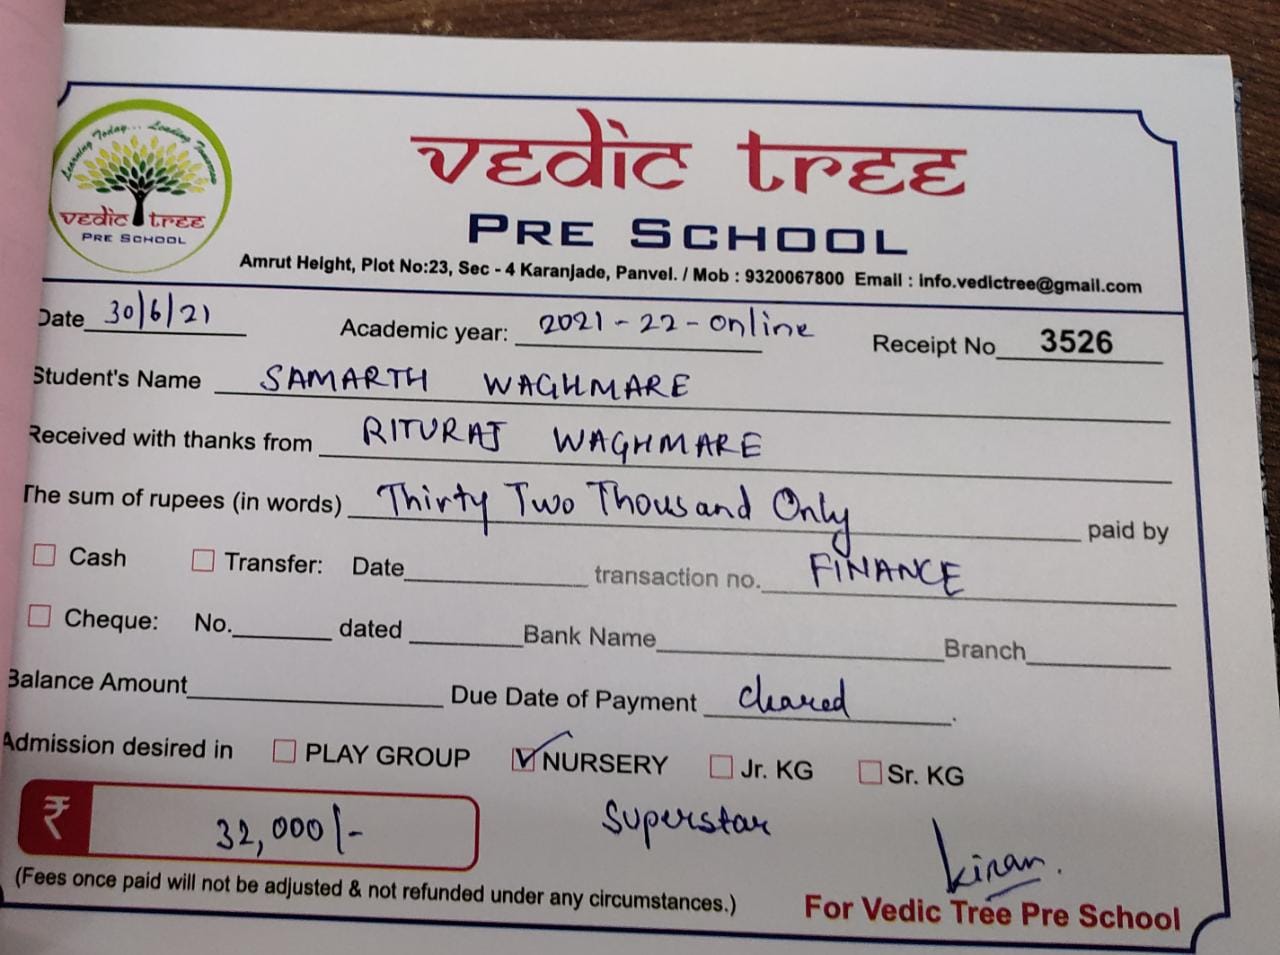 Learning Today... Leading Tomorrow
vedic tree
PRE SCHOOL
vedic tree
PRE SCHOOL
Amrut Height, Plot No:23, Sec - 4 Karanjade, Panvel. / Mob : 9320067800 Email : info.vedictree@gmail.com
Date 30/6/21 Academic year: 2021-22-online Receipt No 3526
Student's Name SAMARTH WAGHMARE
Received with thanks from RITURAJ WAGHMARE
The sum of rupees (in words) Thirty Two Thousand Only paid by
Cash Transfer: Date transaction no. FINANCE
Cheque: No. dated Bank Name Branch
Balance Amount Due Date of Payment cleared.
Admission desired in PLAY GROUP NURSERY Jr. KG Sr. KG
₹ 32,000/- Superstar
kiran.
(Fees once paid will not be adjusted & not refunded under any circumstances.) For Vedic Tree Pre School